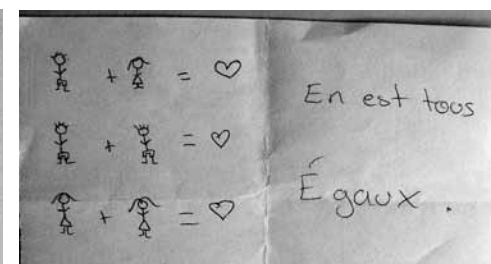 + = ♡
+ = ♡
+ = ♡
En est tous
Égaux.